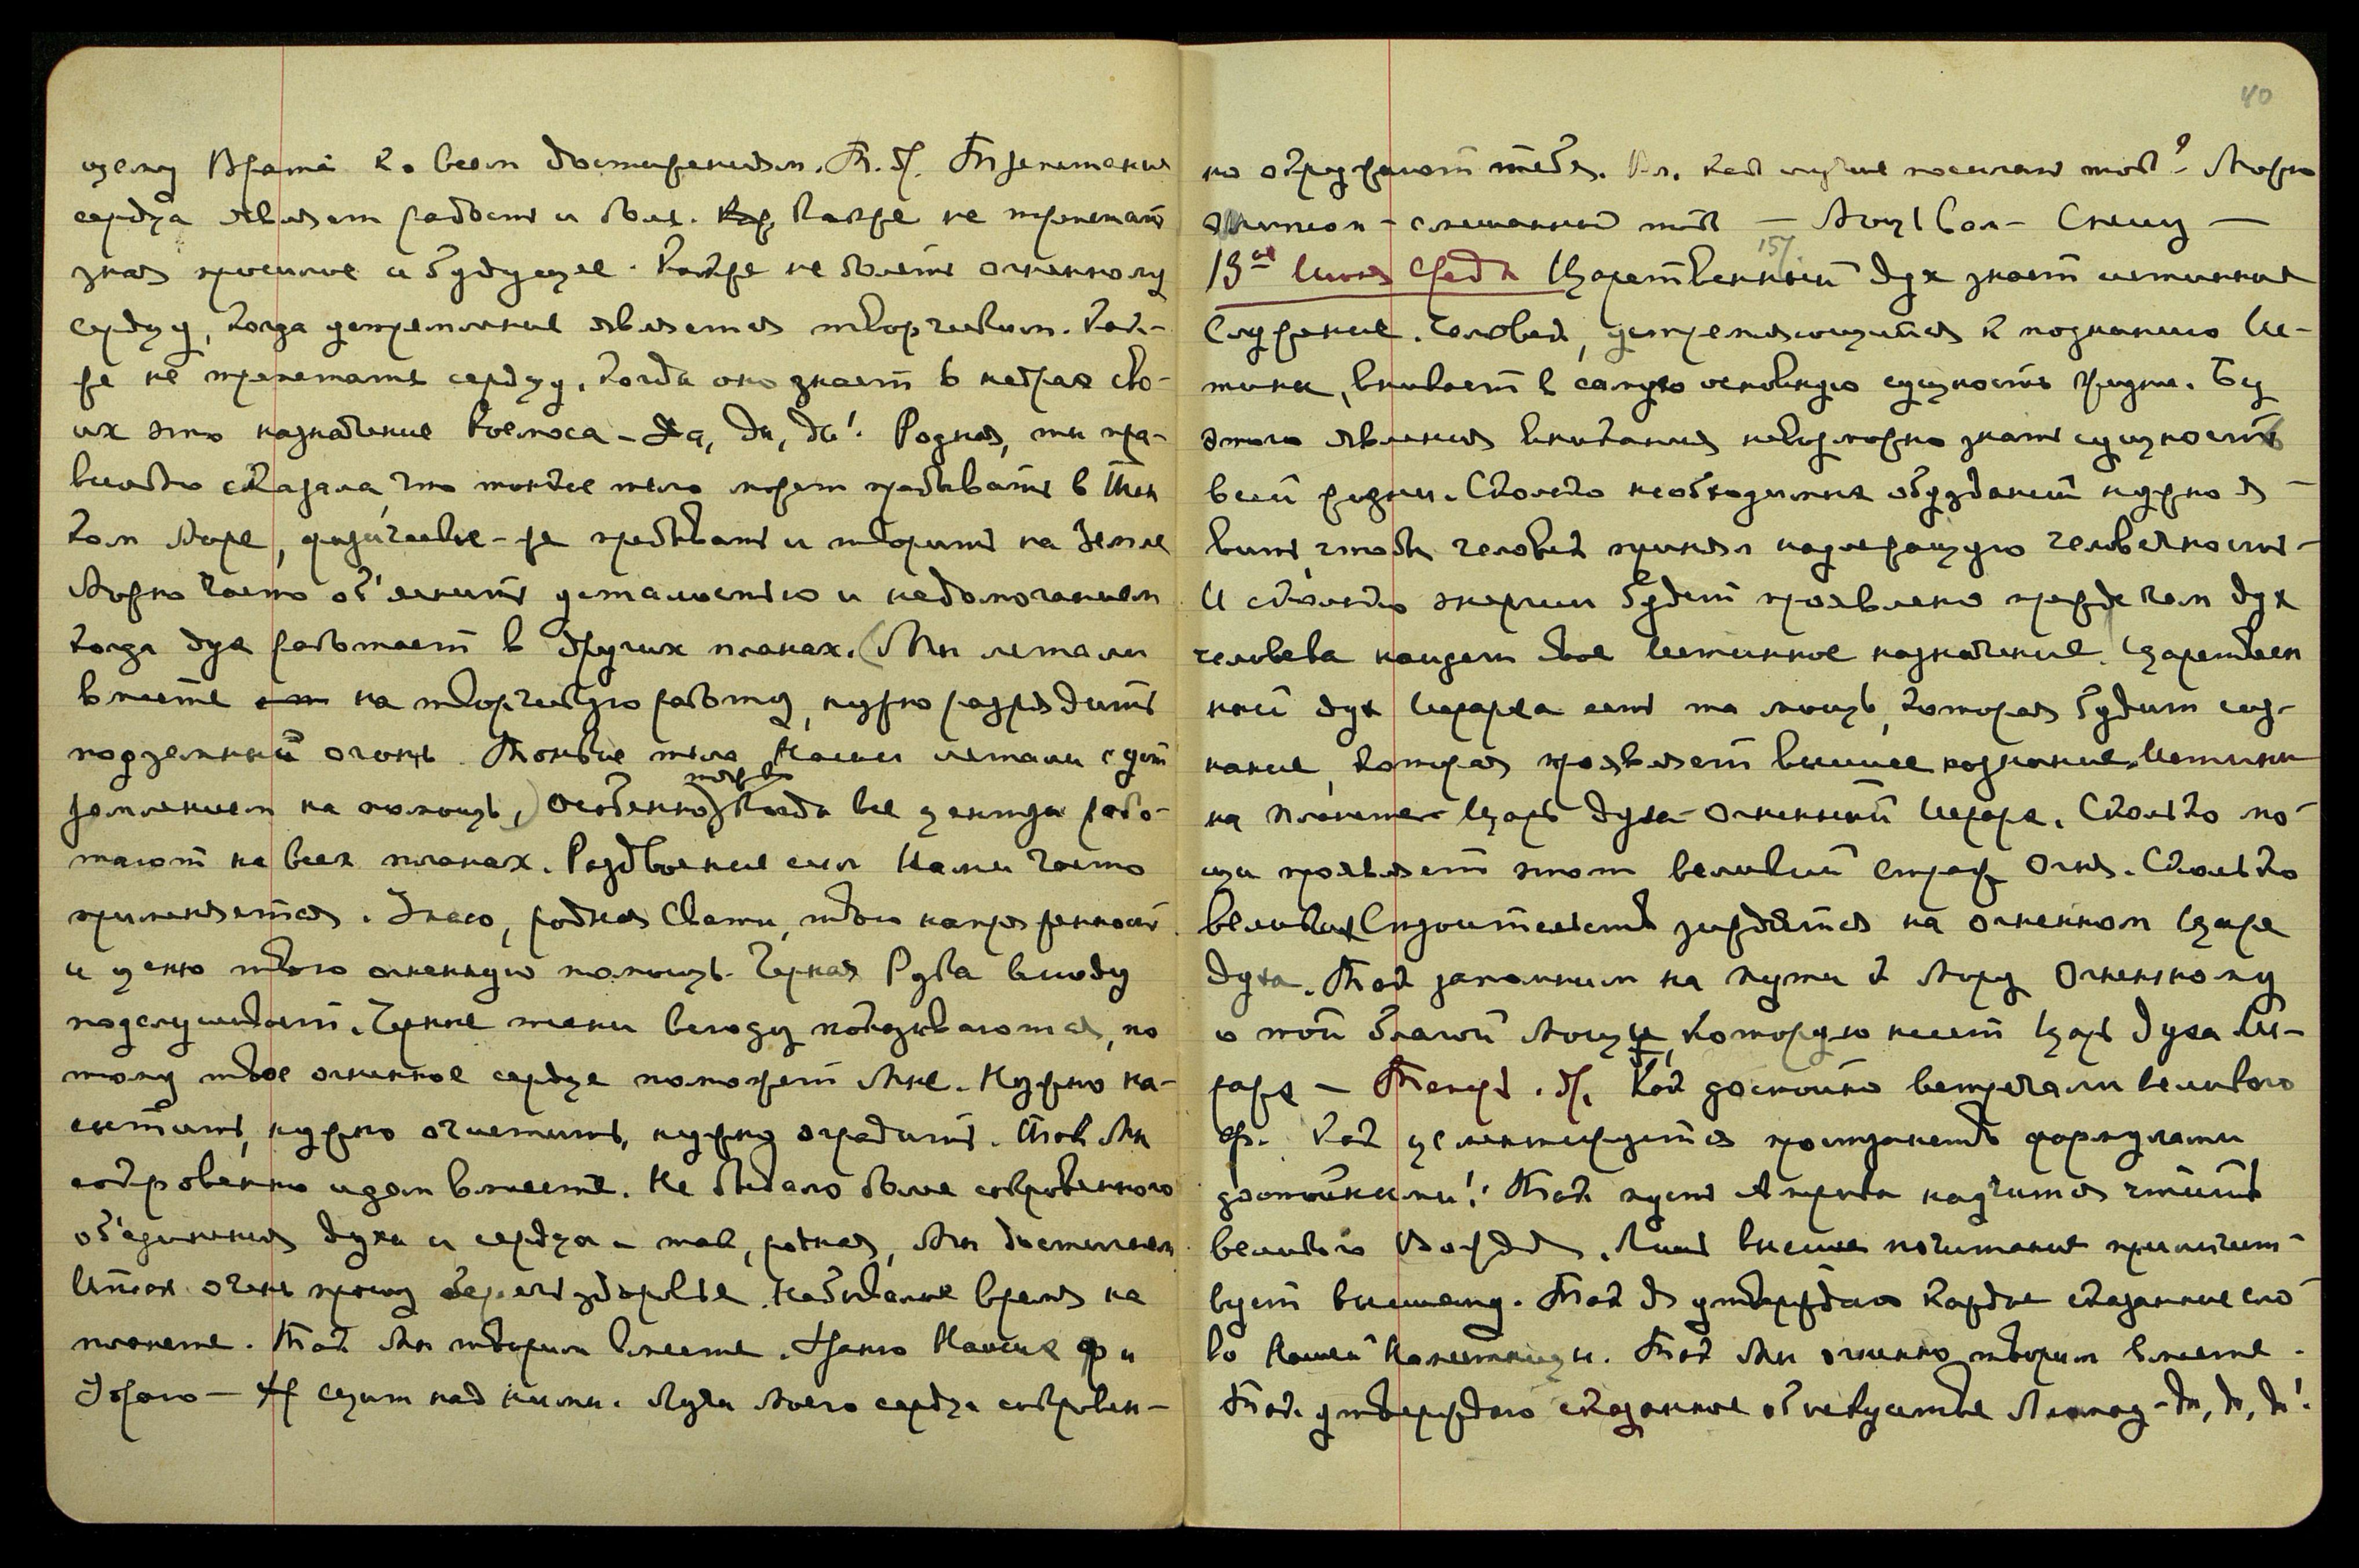 щему Врата ко всем достижениям. Т. Ур. Трепетания
сердца являет радость и боль. Как же не трепетать
зная прошлое и будущее. Как же не болеть огненному
сердцу, когда устремление является творчеством. Как-
же не трепетать сердцу, когда оно знает в недрах сво-
их это назначение Космоса — Да, да, да! Родная, ты пра-
вильно сказала, что тонкое тело может пребывать в Тон
ком Мире, физическое-же пребывать и творить на Земле
Можно часто об'яснить усталостью и недомоганием
когда дух работает в других планах. (Мы летали
вместе на творческую работу, нужно разрядить
подземный огонь. Тонкие тела Наши летали с уст
ремлением на помощь,) Особенно тяжко когда все центры рабо-
тают на всех планах. Раздвоение сил Нами часто
применяется. Знаю, родная Свати, твою напряженность
и ценю твою огненную помощь. Черная Рука всюду
подслушивает. Черные тени всюду показываются, по
тому твое огненное сердце поможет Мне. Нужно на-
сытить, нужно очистить, нужно оградить. Так Мы
сокровенно идем вместе. Не бывало более сокровенного
об'единения духа и сердца — так, родная, Мы достигнем
Итак очень прошу беречь здоровье. Небывалое время на
планете. Так Мы творим вместе. Храню Наших Ф и
Удраю — Щит над ними. Лучи Моего сердца сокровен-
40
но окружают тебя. Вл. Как лучше посылать ток? Можно
— смешанный ток — Спешу —
157.
13ое Июня Среда Царственный дух знает истинное
Служение. Человек, устремляющийся к познанию Ис-
тины, вникает в самую основную сущность жизни. Без
этого явления вникания невозможно знать сущность
всей жизни. Сколько необходимых обузданий нужно я-
вить, чтобы человек принял надлежащую человечность —
И сколько энергии будет проявлено прежде чем дух
человека найдет свое Истинное назначение. Царствен
ный дух Иерарха есть та мощь, которая будит соз-
нание, которая проявляет высшее познание Истины
на планете — Царь духа — Огненный Иерарх. Сколько мо-
щи проявляет этот великий Страж Огня. Сколько
великих Строительств зиждется на огненном Царе
духа. Так запомним на пути к Миру Огненному
о той благой Мощи, которую несет Царь духа Ие-
рарх — Теперь. Ур. Как достойно встречали великого
Ф. Как цементируется пространство формулами
достойными! Так пусть Америка научится чтить
великого Вождя. Лишь высшее почитание приличест-
вует высшему. Так Я утверждаю каждое сказанное сло
во Нашей Наместницы. Так Мы огненно творим вместе.
Так утверждаю сказанное об искусстве — да, да, да!